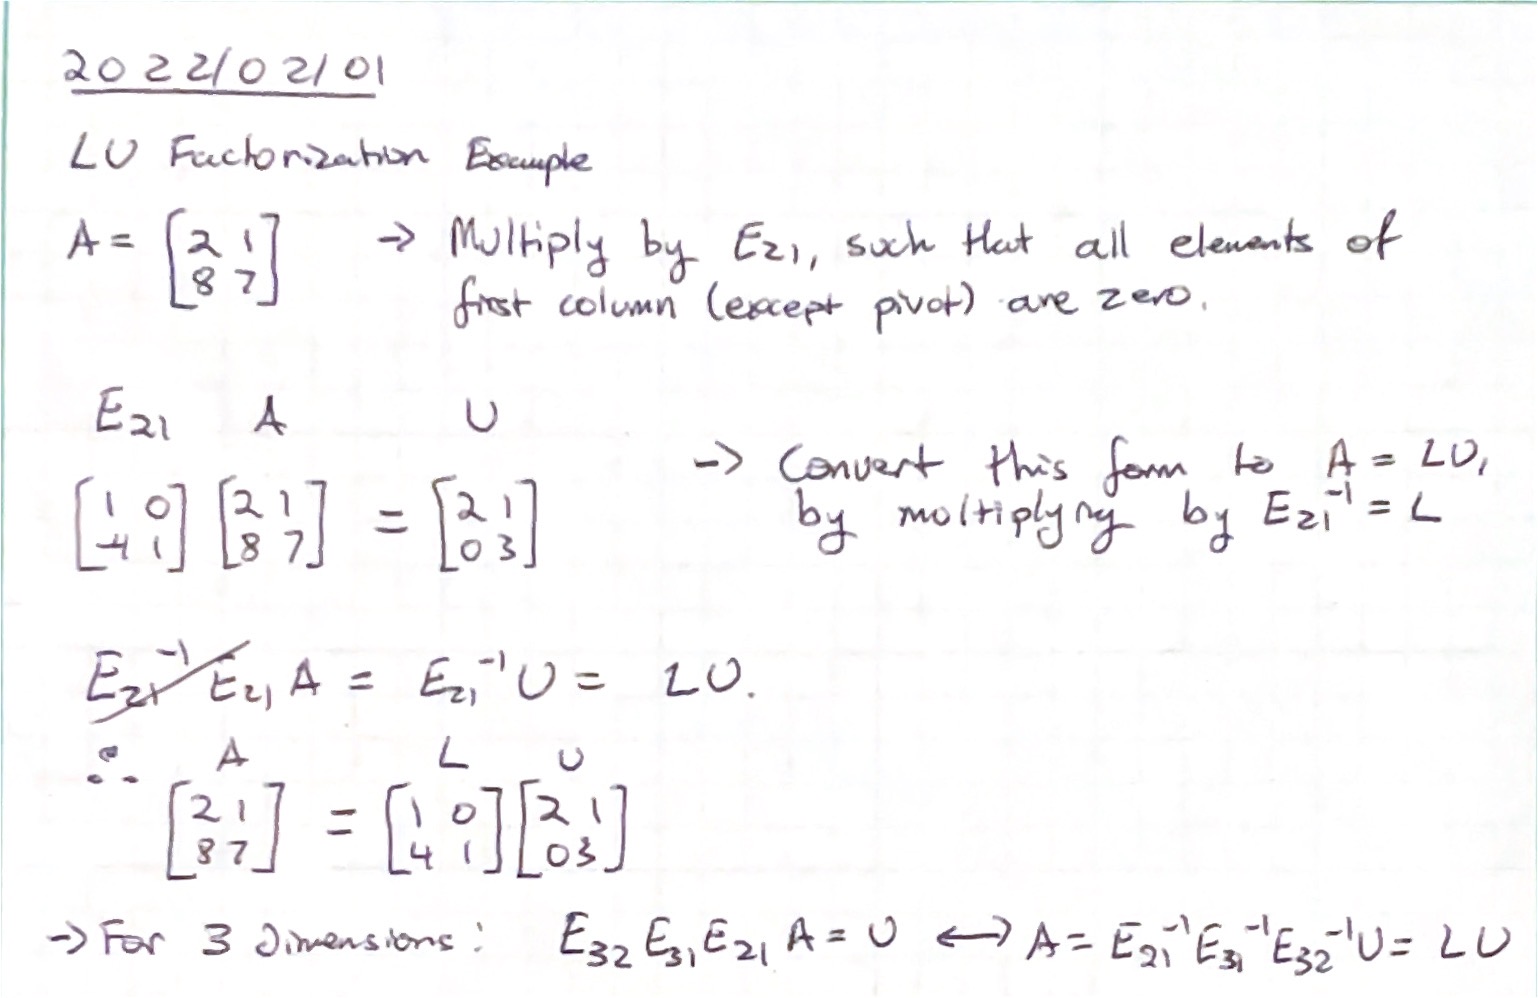 2022/02/01
LU Factorization Example
A = [2 1
8 7] → Multiply by E21, such that all elements of
first column (except pivot) are zero.
E21 A U
[1 0
-4 1] [2 1
8 7] = [2 1
0 3]
→ Convert this form to A = LU,
by multiplying by E21⁻¹ = L
E21⁻¹ E21 A = E21⁻¹ U = LU.
∴ A L U
[2 1
8 7] = [1 0
4 1] [2 1
0 3]
→ For 3 Dimensions: E32 E31 E21 A = U ↔ A = E21⁻¹ E31⁻¹ E32⁻¹ U = LU